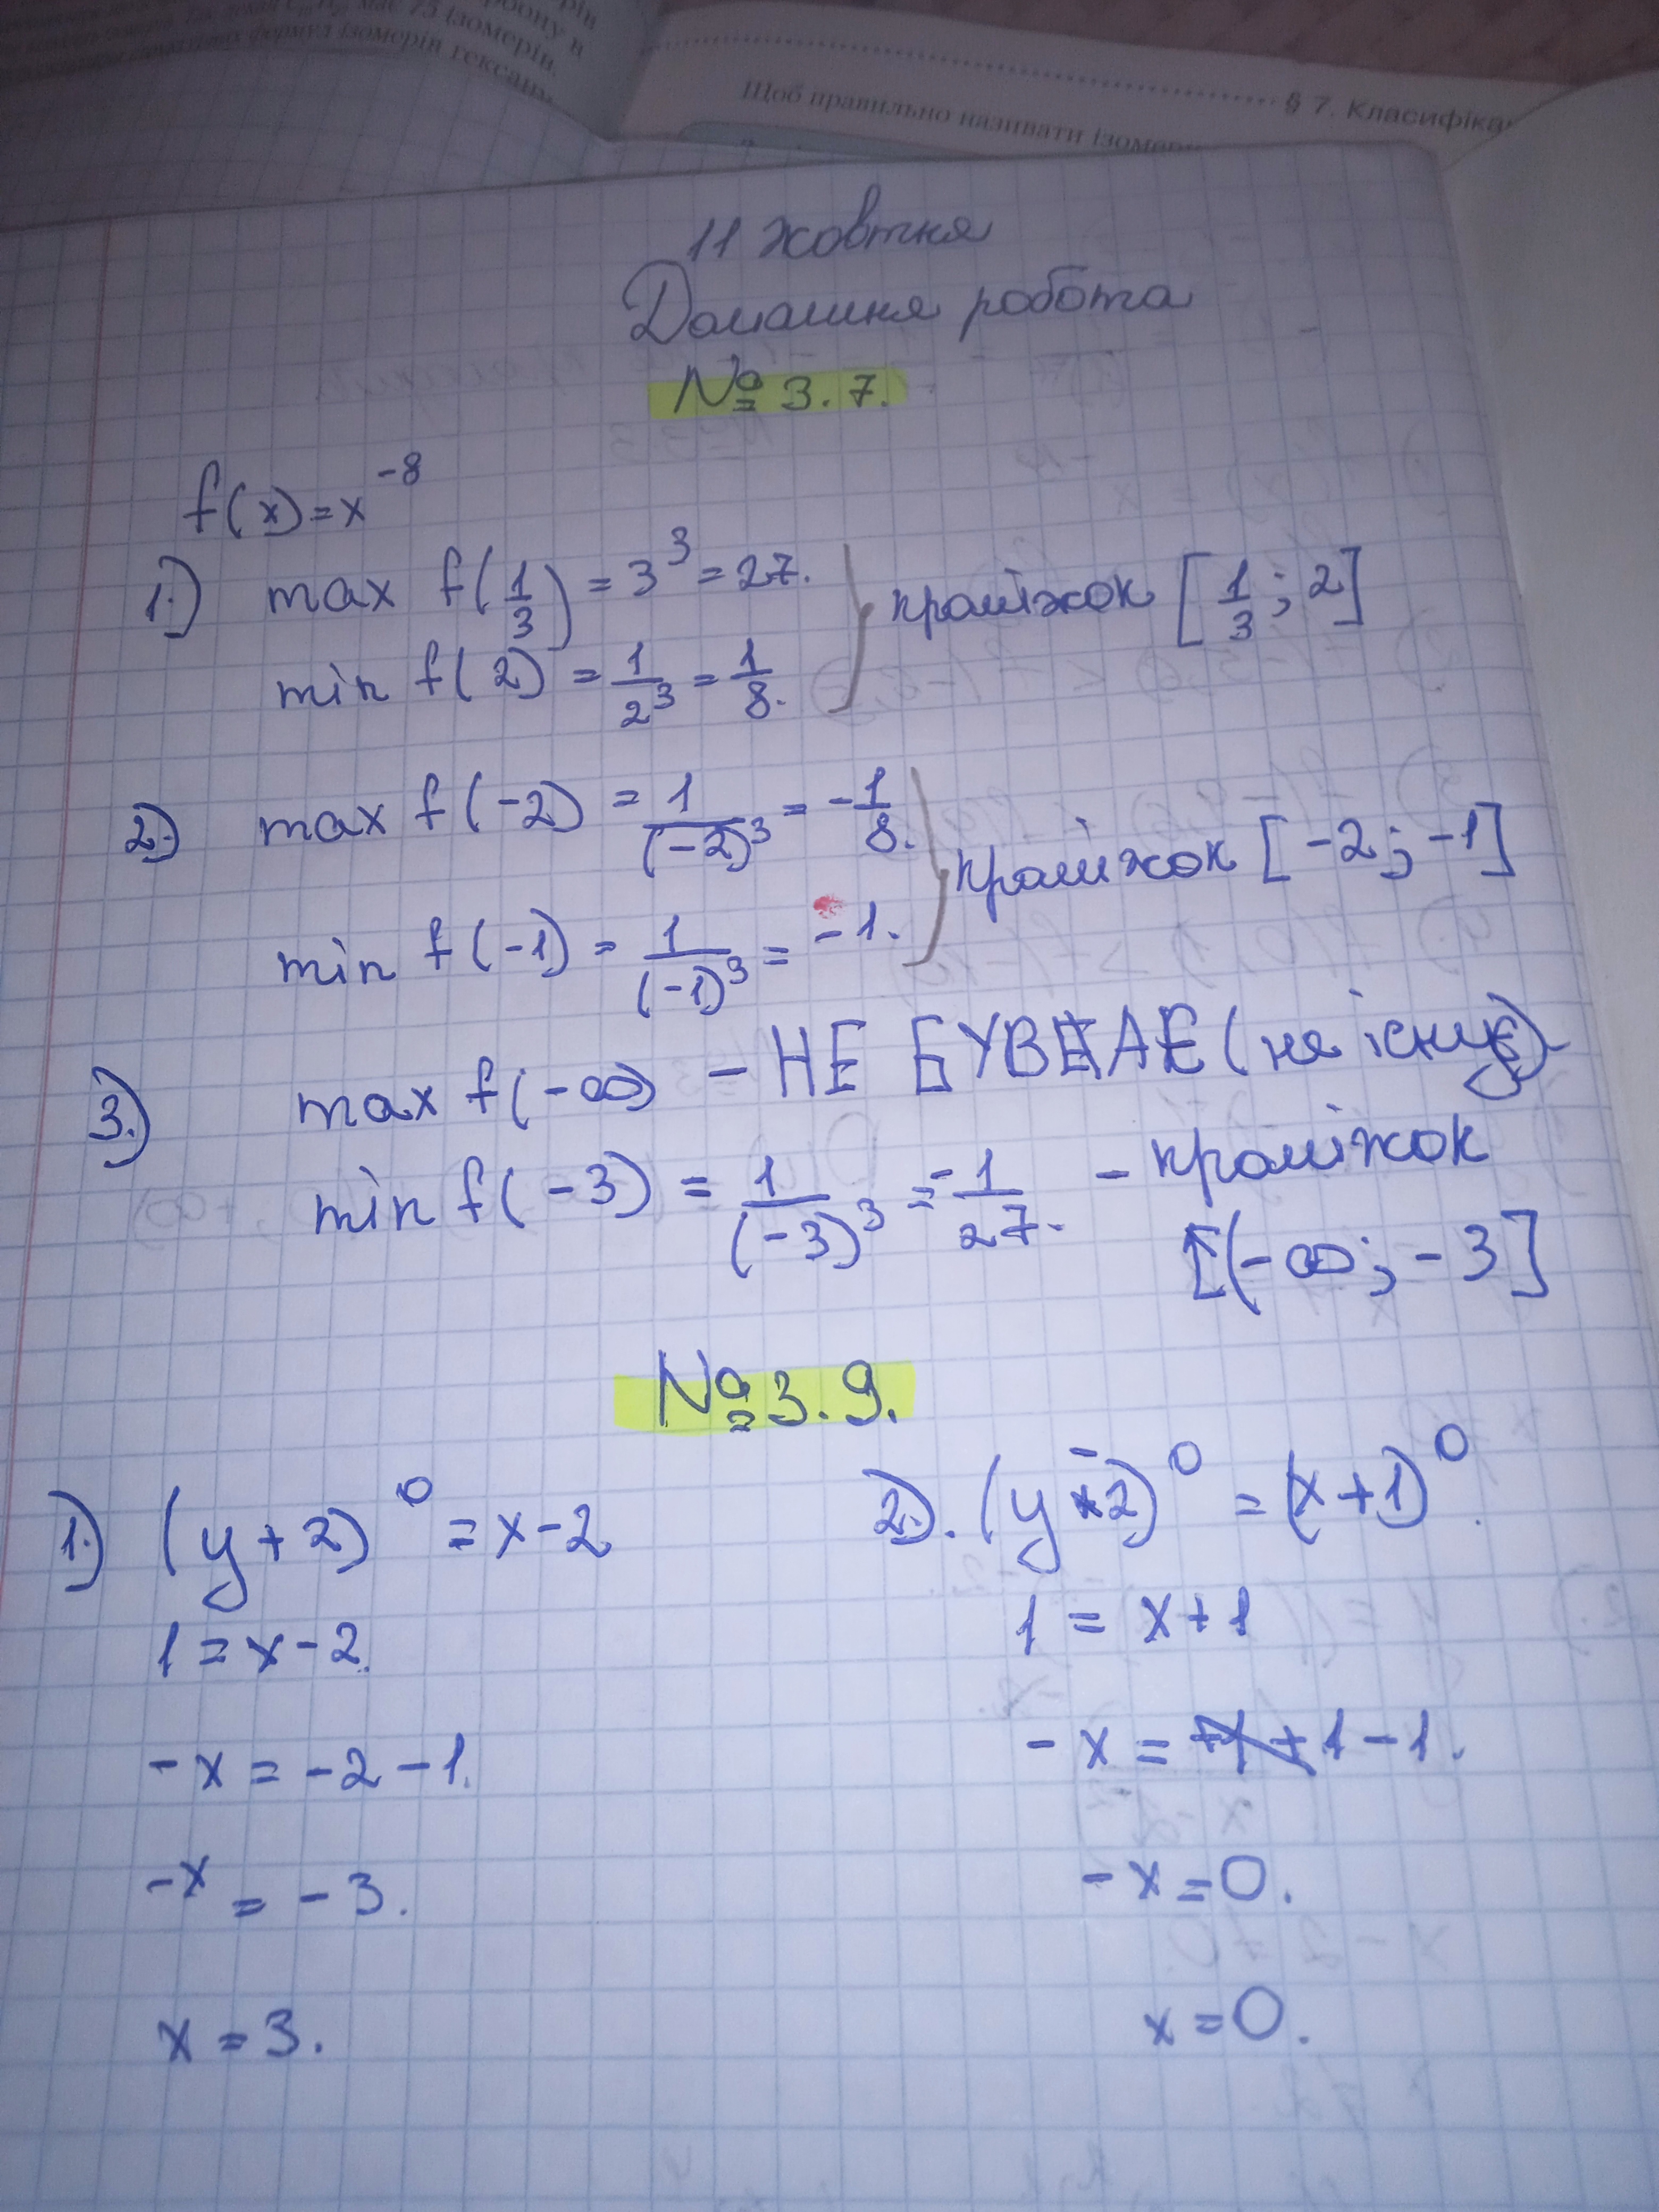 рбону в
має 75 ізомерів.
формул ізомерів гексану
§ 7. Класифіка
Щоб правильно називати ізомери
11 жовтня
Домашня робота
№ 3.7.
f(x)=x^-8
1.) max f(1/3) = 3^3 = 27.
min f(2) = 1/2^3 = 1/8.
проміжок [1/3; 2]
2.) max f(-2) = 1/(-2)^3 = -1/8.
min f(-1) = 1/(-1)^3 = -1.
проміжок [-2; -1]
3.) max f(-∞) - НЕ БУВАЄ (не існує)
min f(-3) = 1/(-3)^3 = -1/27. - проміжок
(-∞; -3]
№ 3.9.
1.) (y+2)^0 = x-2
1 = x-2.
-x = -2-1.
-x = -3.
x = 3.
2.). (y-2)^0 = (x+1)^0.
1 = x+1
-x = 1-1.
-x = 0.
x = 0.